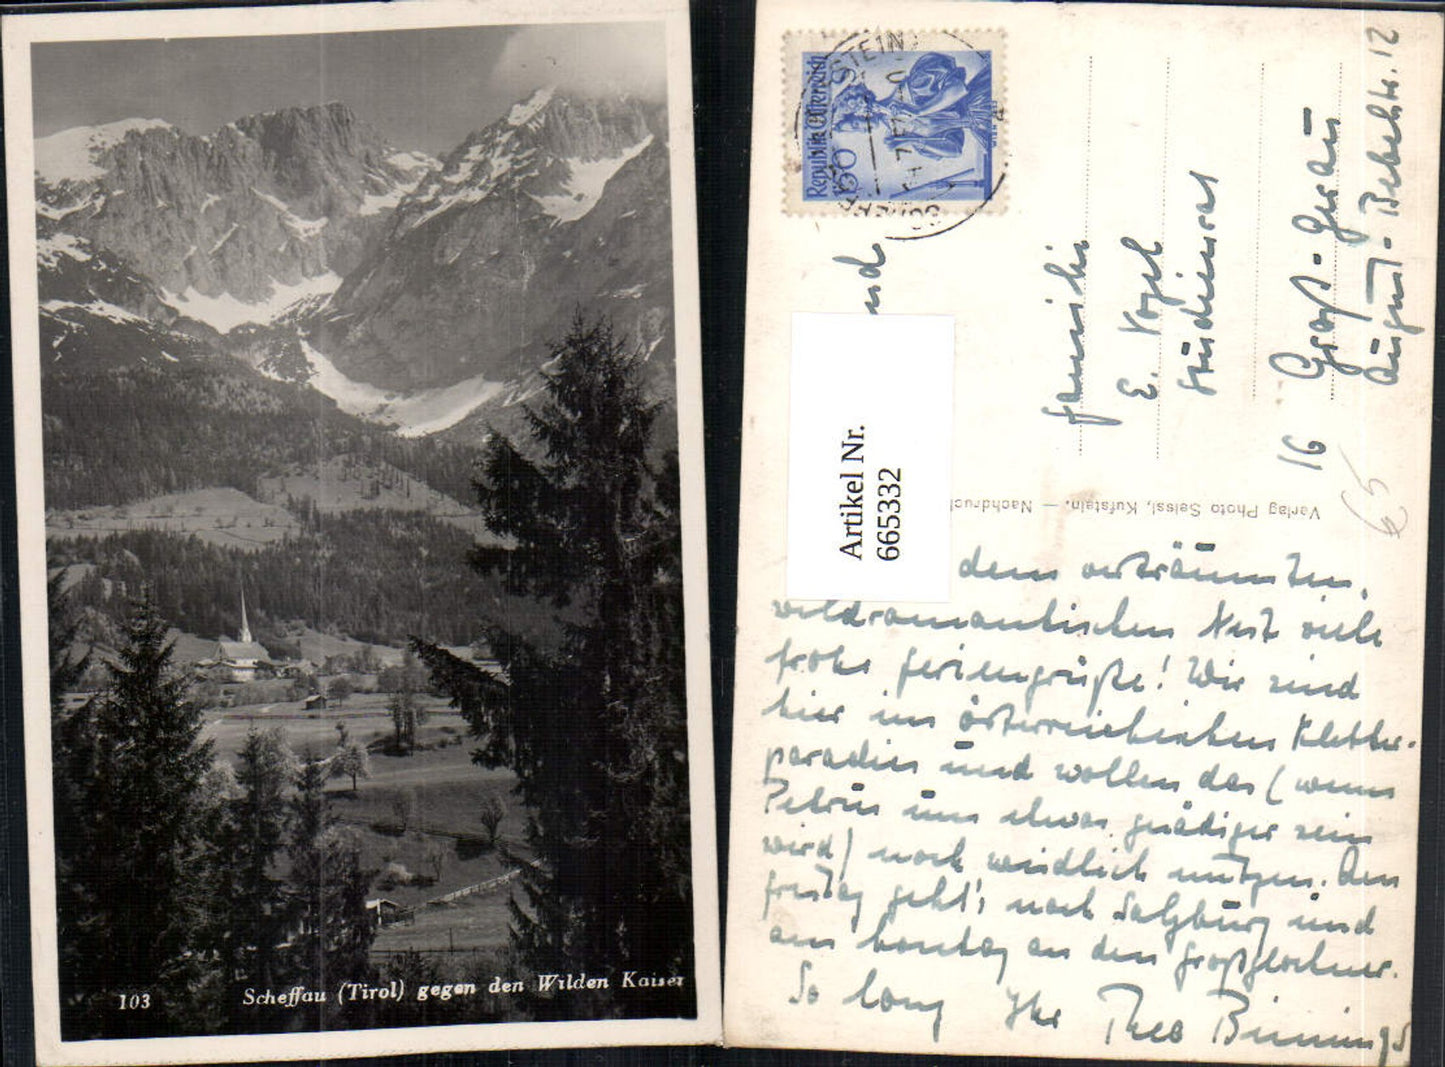 103
Scheffau (Tirol) gegen den Wilden Kaiser
Republik Österreich
Artikel Nr.
665332
Verlag Photo Seissl, Kufstein. — Nachdruck
Familie
E. Vogel
Studienrat
16 Groß-Gerau
August-Bebelstr. 12
65
und
dem verträumten,
wildromantischen Nest viele
frohe Feriengrüße! Wir sind
hier im österreichischen Kletter-
paradies und wollen das (wenn
Petrus uns etwas gnädiger sein
wird) noch weidlich nutzen. Am
Freitag geht's nach Salzburg und
am Sonntag an den Großglockner.
So long Ihr Theo